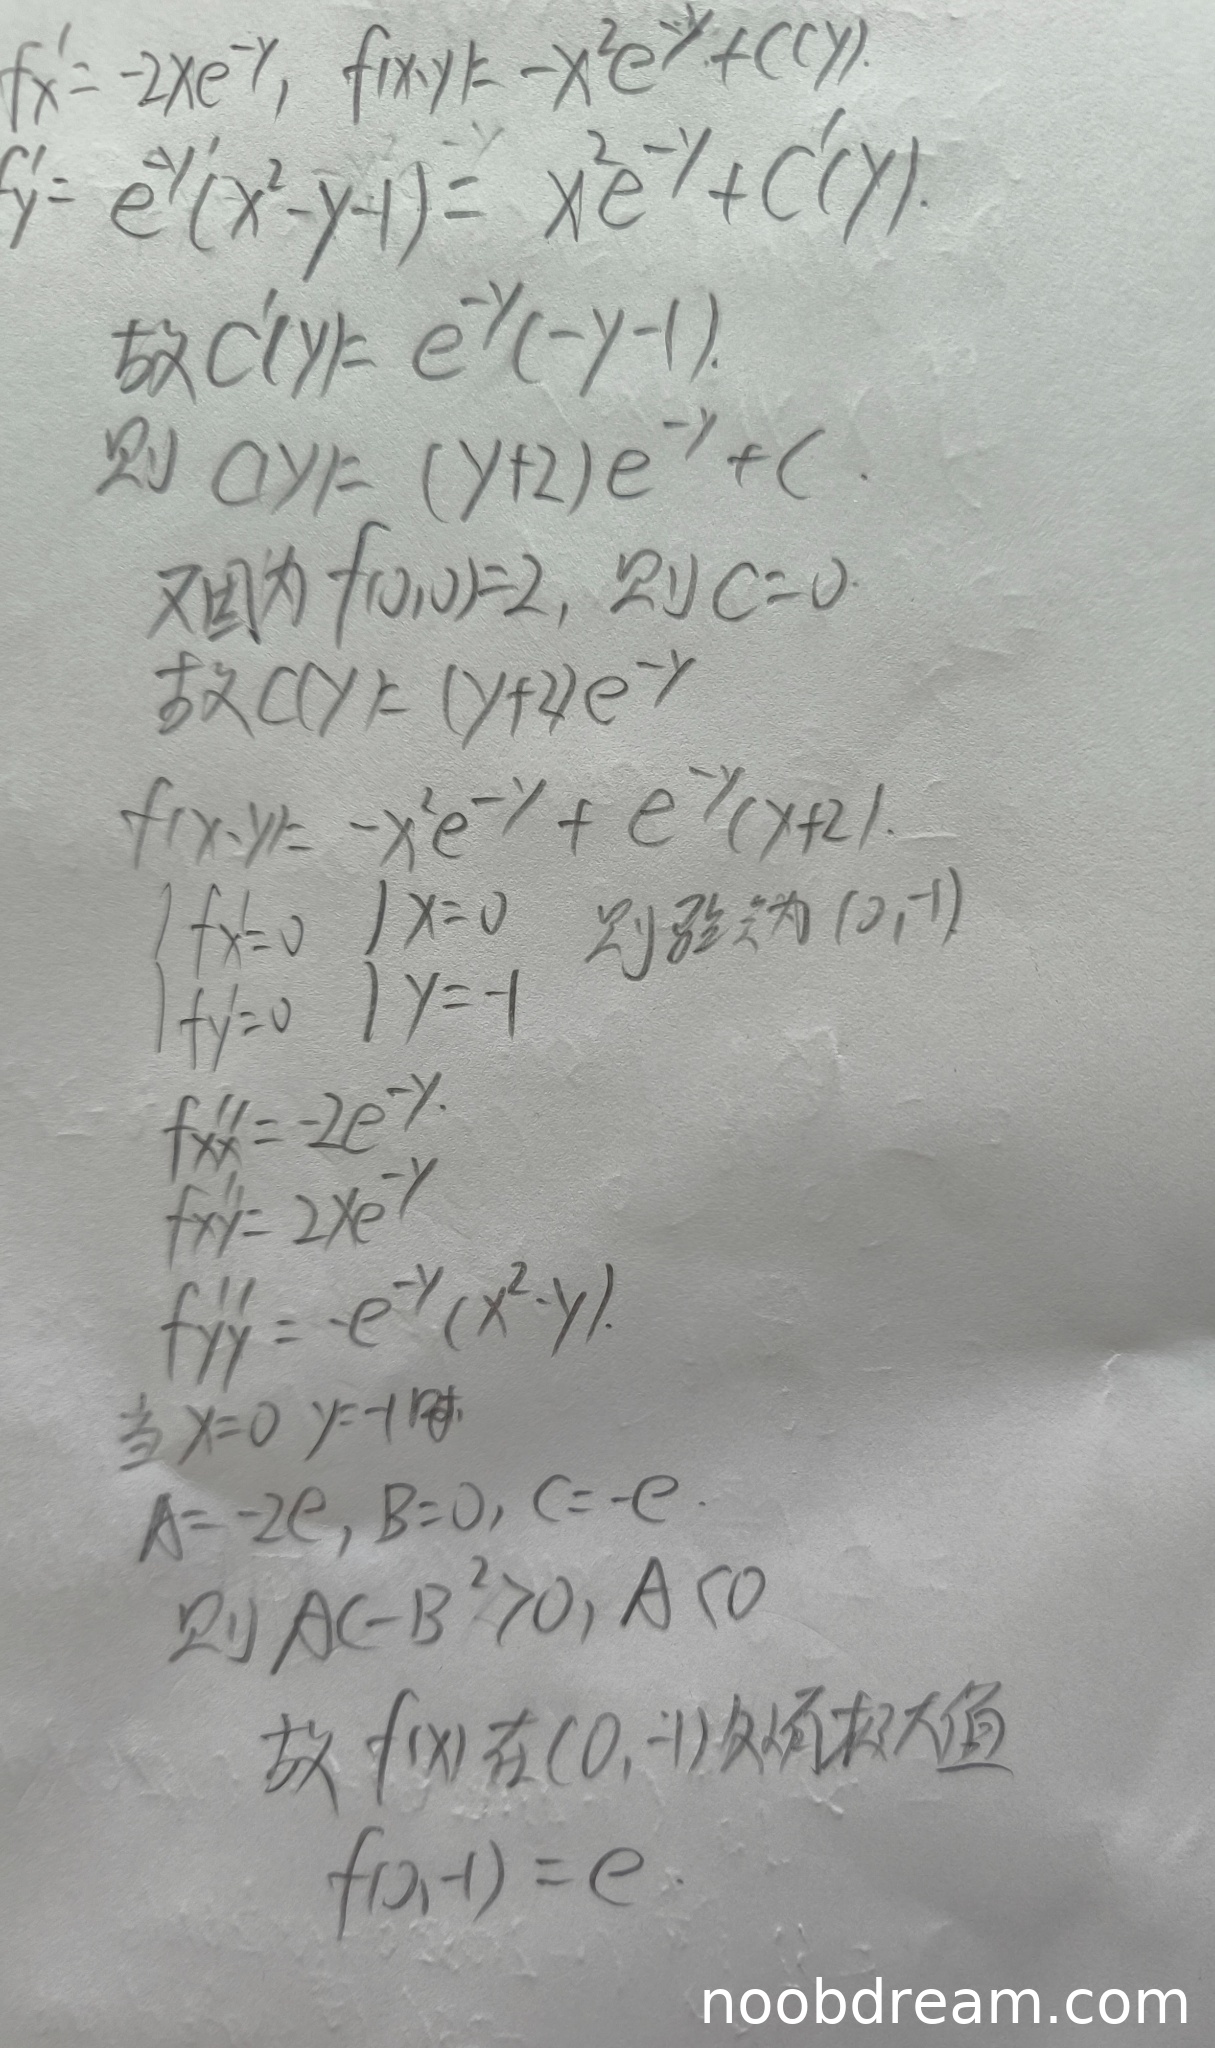 fx' = -2xe^{-y}, f(x,y) = -x²e^{-y} + C(y).
fy' = e^{-y}(x²-y-1) = x²e^{-y} + C'(y).
故 C'(y) = e^{-y}(-y-1).
则 C(y) = (y+2)e^{-y} + C.
又因为 f(0,0)=2, 则 C=0.
故 C(y) = (y+2)e^{-y}
f(x,y) = -x²e^{-y} + e^{-y}(y+2).
{ fx'=0 { x=0 则驻点为 (0,-1)
{ fy'=0 { y=-1
fxx'' = -2e^{-y}.
fxy'' = 2xe^{-y}
fyy'' = -e^{-y}(x²-y).
当 x=0 y=-1时.
A=-2e, B=0, C=-e.
则 AC-B²>0, A<0
故 f(x) 在(0,-1)处有极大值
f(0,-1) = e.
noobdream.com